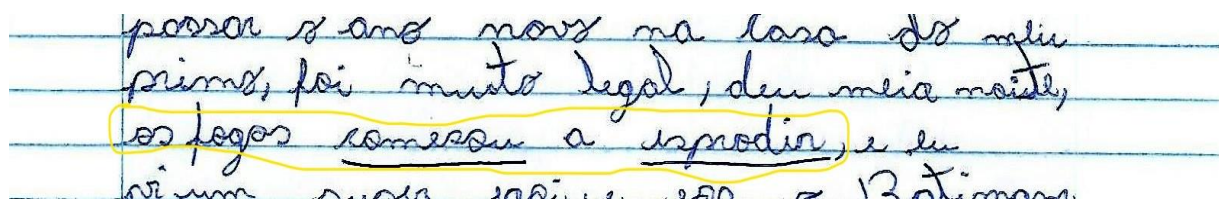 passar o ano novo na casa do meu
primo, foi muito legal, deu meia noite,
os fogos comesou a isprodir, e eu
vi um o Batimam